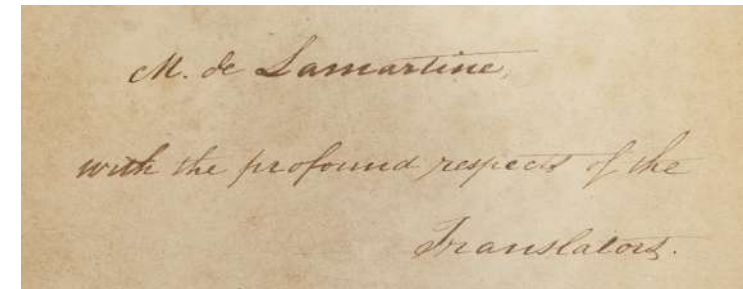 M. de Lamartine,
with the profound respects of the
Translators.